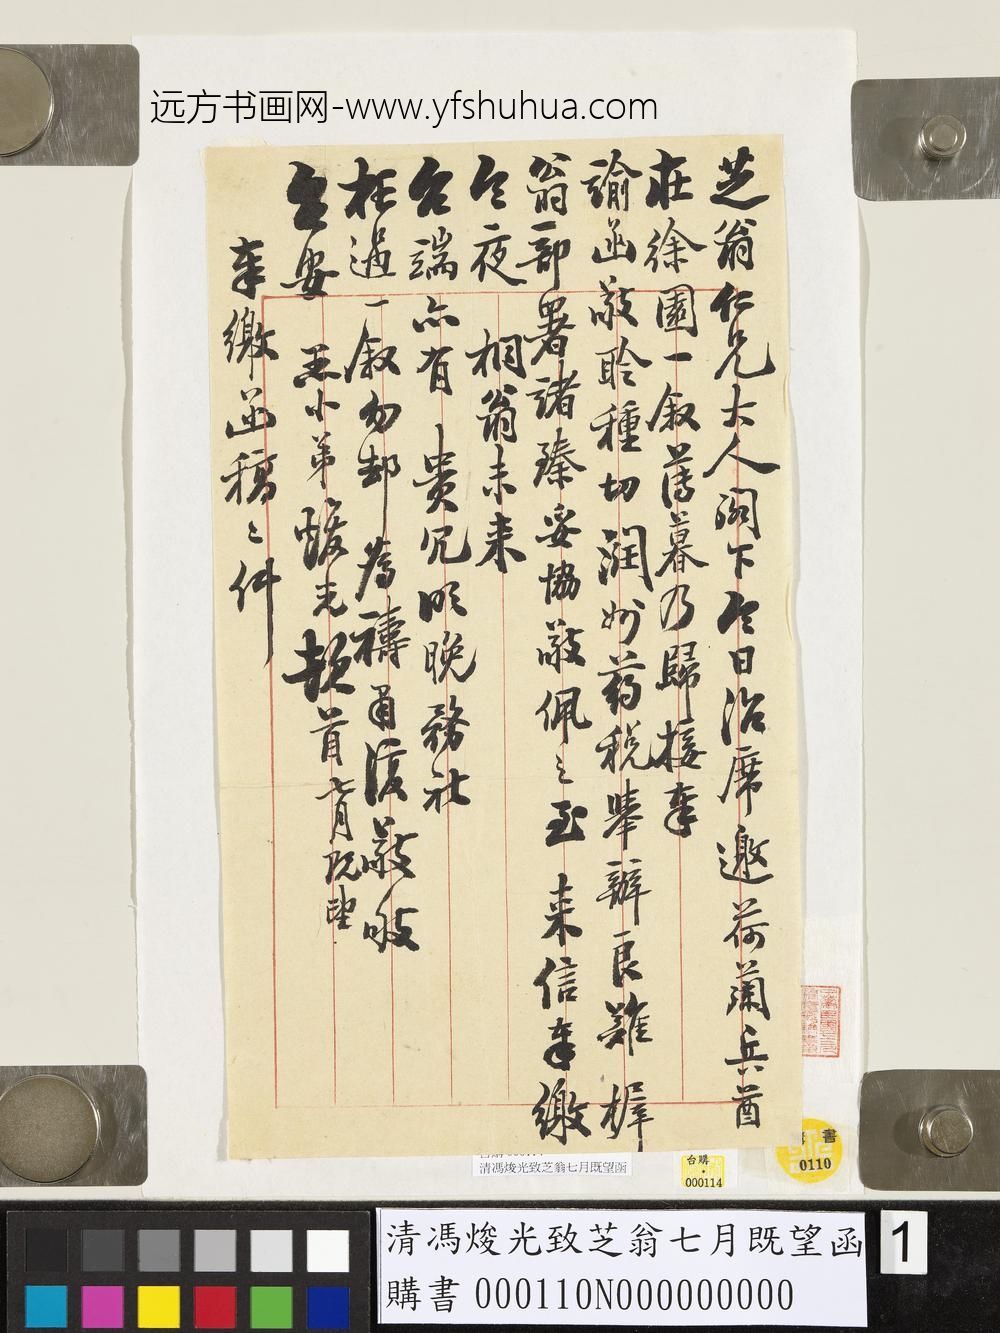 远方书画网-www.yfshuhua.com
芝翁仁兄大人阁下今日治席邀荷蘭兵酋
在徐園一叙薄暮乃歸接奉
諭函敬聆種切潤州药税舉辦良難樨
翁部署諸臻妥協敬佩之至来信奉繳
今夜桐翁未来
台端亦有貴冗明晚務祉
枉過一叙勿却為禱耑復敬頌
台安愚小弟焌光頓首七月既望
奉繳函稿二件
書
0110
台購
000114
清馮焌光致芝翁七月既望函
清馮焌光致芝翁七月既望函
購書000110N000000000
1